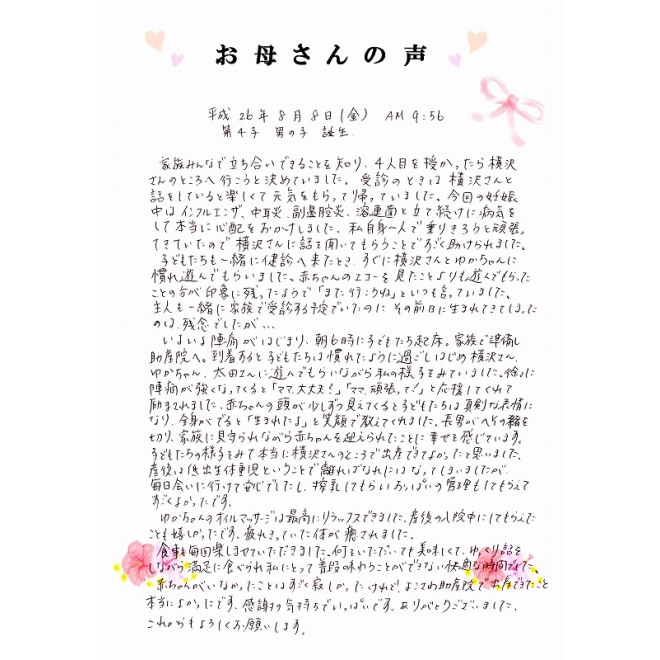 お母さんの声
平成26年8月8日(金) AM 9:56
第4子 男の子 誕生
家族みんなで立ち合いできることを知り、4人目を授かったら横沢
さんのところへ行こうと決めていました。受診のときは横沢さんと
話をしていると楽しくて元気をもらって帰っていました。今回の妊娠
中はインフルエンザ、中耳炎、副鼻腔炎、溶連菌と立て続けに病気を
して本当に心配をおかけしました。私自身一人で乗りきろうと頑張っ
てきていたので横沢さんに話を聞いてもらうことですごく助けられました。
子どもたちも一緒に健診へ来たとき、すぐに横沢さんとゆかちゃんに
慣れ遊んでもらいました。赤ちゃんのエコーを見たことよりも遊んでもらった
ことの方が印象に残ったようで「また行こうね」といつも言っていました。
主人も一緒に家族で受診する予定でいたのに その前日に生まれてきてしまった
のは、残念でしたが…
いよいよ陣痛がはじまり、朝6時に子どもたち起床。家族で準備し
助産院へ。到着すると子どもたちは慣れたように過ごしはじめ横沢さん、
ゆかちゃん、太田さんに遊んでもらいながら私の様子をみていました。徐々に
陣痛が強くなってくると「ママ、大丈夫!」「ママ、頑張って!」と応援してくれて
励まされました。赤ちゃんの頭が少しずつ見えてくると子どもたちは真剣な表情に
なり、全身がでると「生まれたよ」と笑顔で教えてくれました。長男がへその緒を
切り、家族に見守られながら赤ちゃんを迎えられたことに幸せを感じています。
子どもたちの様子をみて本当に横沢さんのところで出産できてよかったと思いました。
産後は低出生体重児ということで離ればなれにはなってしまいましたが、
毎日会いに行けて安心でしたし、搾乳してもらいおっぱいの管理もしてもらえて
すごくよかったです。
ゆかちゃんのオイルマッサージは最高にリラックスできました。産後の入院中にしてもらえた
ことも嬉しかったです。疲れきっていた体が癒されました。
食事も毎回楽しませていただきました。何をいただいても美味しくて、ゆっくり話を
しながら満足に食べられ私にとって普段味わうことができない快適な時間でした。
赤ちゃんがいなかったことはすごく寂しかったけれど、よこさわ助産院で出産できたこと
本当によかったです。感謝の気持ちでいっぱいです。ありがとうございました。
これからもよろしくお願いします。